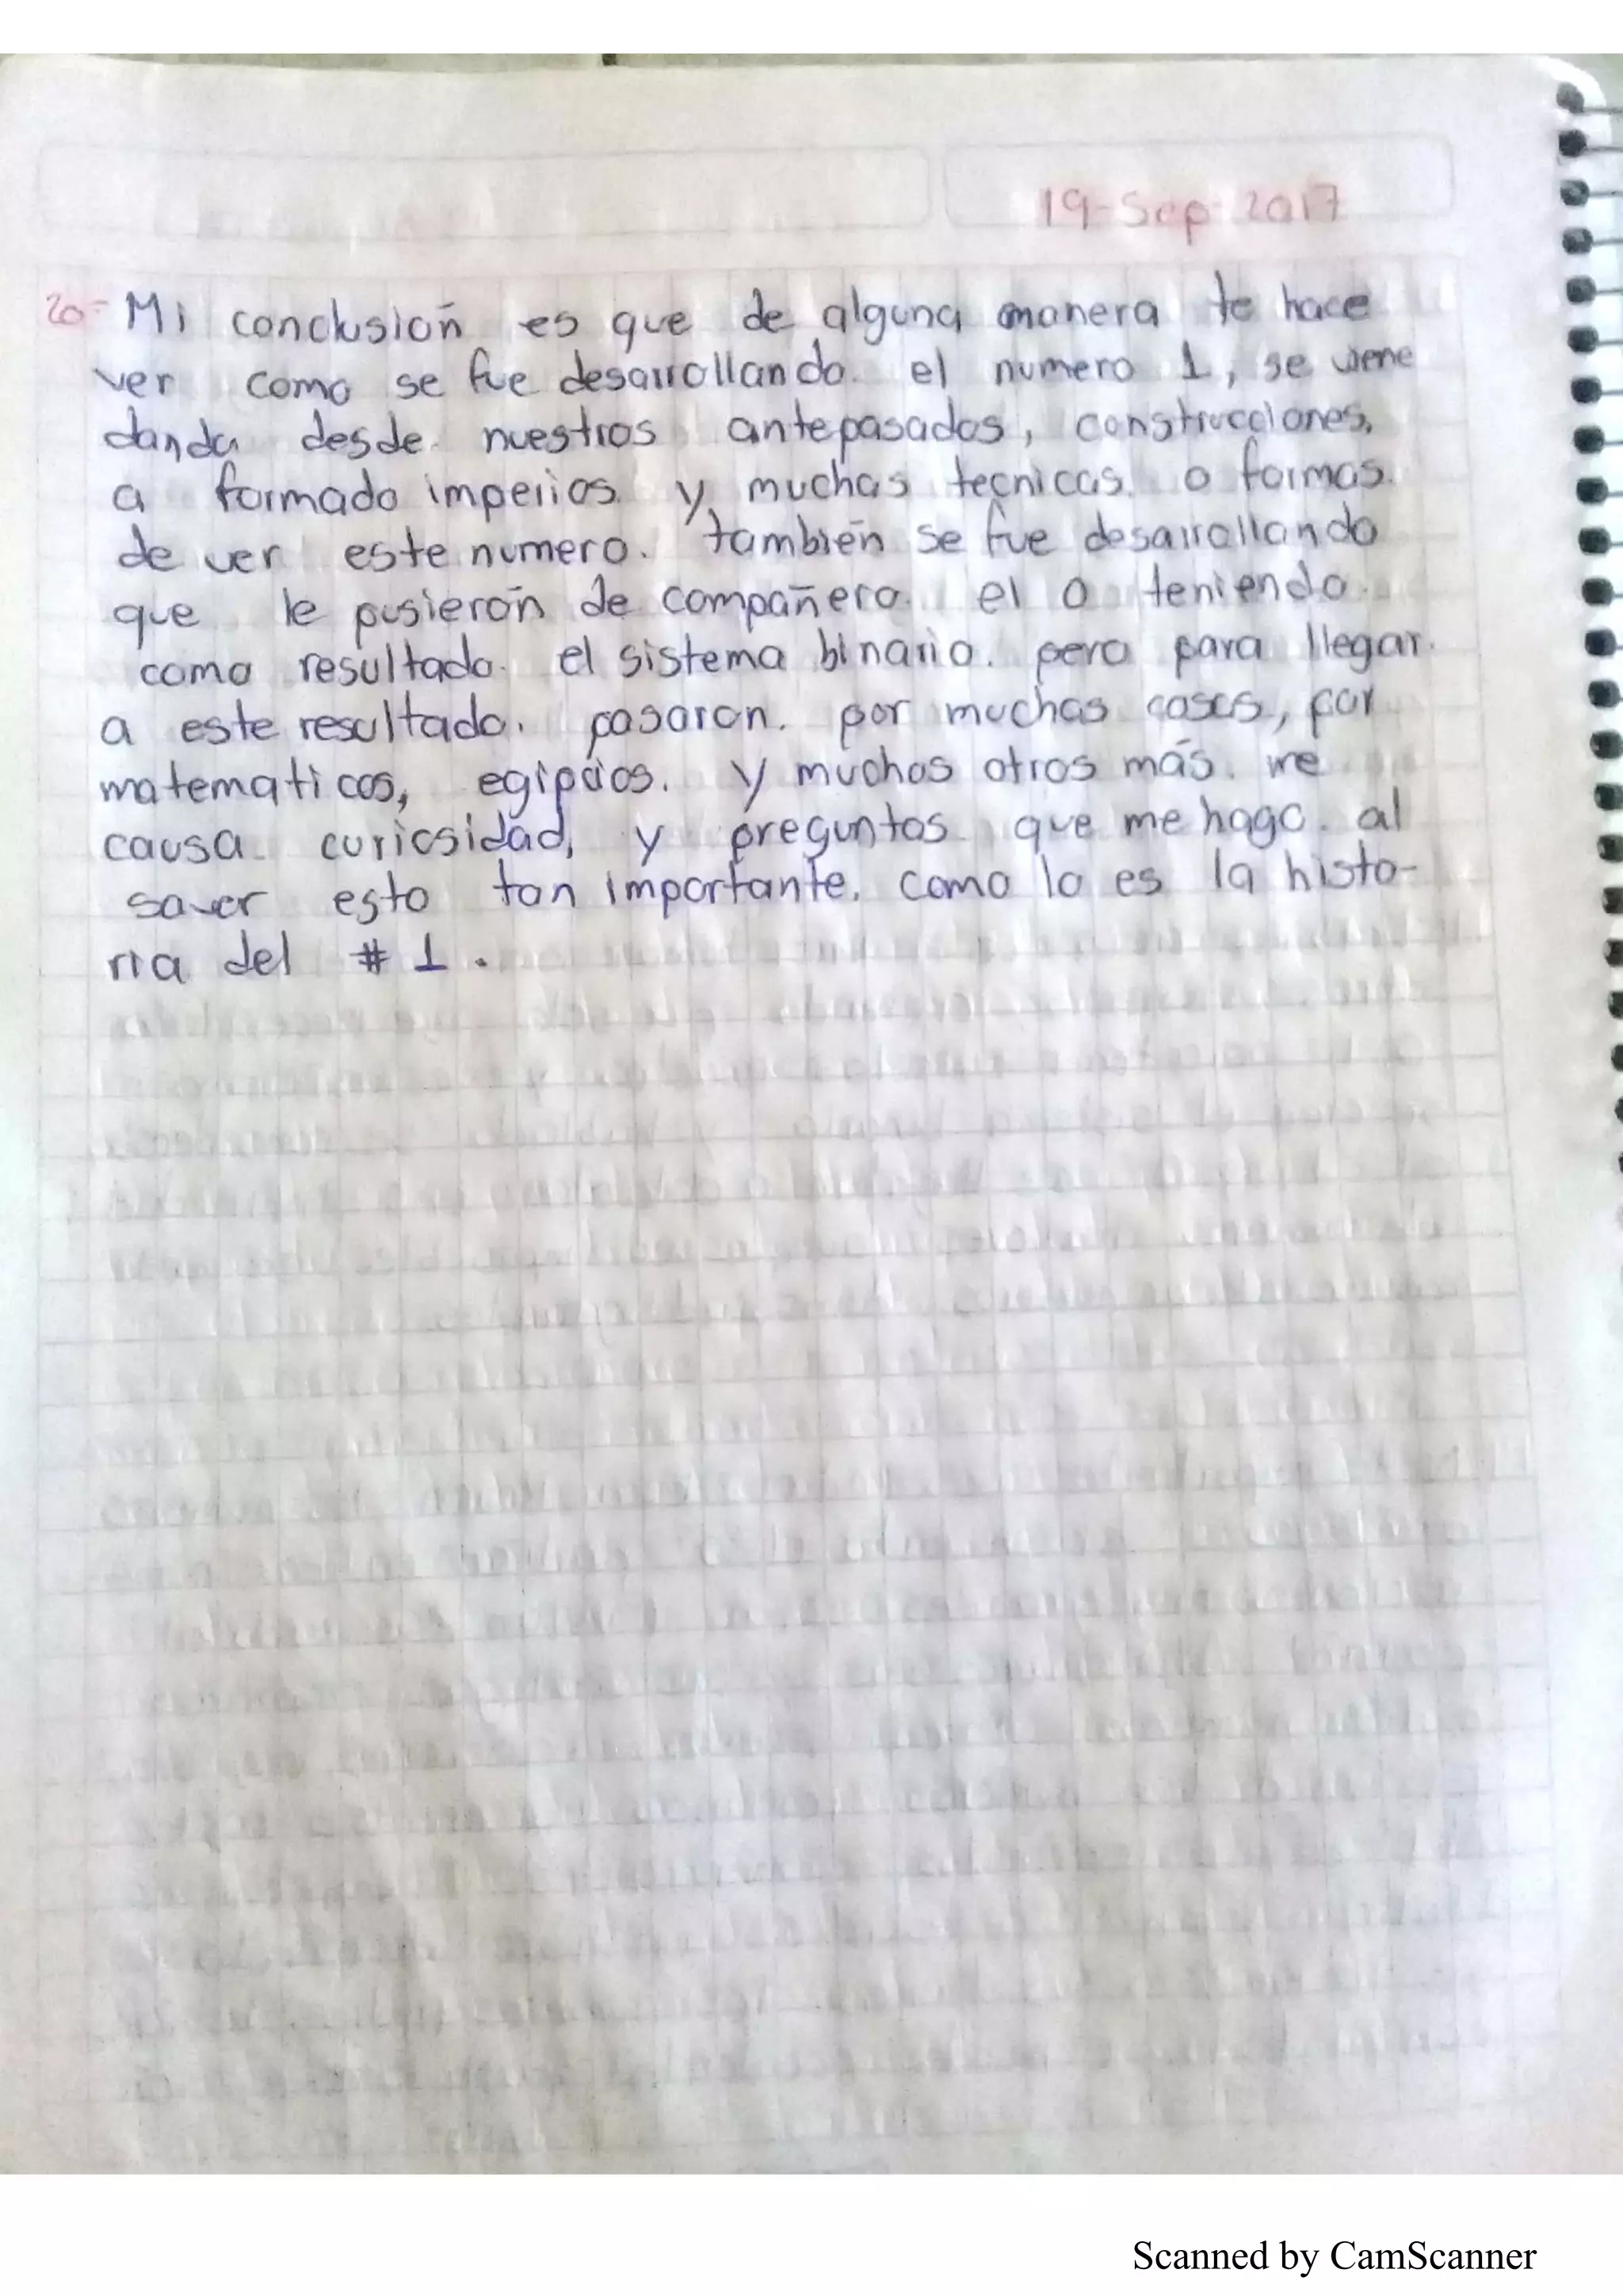 19-Sep-2017
20- Mi conclusión es que de alguna manera te hace
ver como se fue desarrollando. el numero 1, se viene
danda desde nuestros antepasados, construcciones,
a formado imperios. y muchas tecnicas. o formas.
de ver este numero. también se fue desarrollando
que le pusierón de compañero. el 0 teniendo.
como resultado. el sistema binario. pero para llegar.
a este resultado. pasaron. por muchas cosas, por
matematicos, egipcios. y muchos otros más. me
causa curiosidad, y preguntas que me hago. al
saver esto tan importante. como lo es la histo-
ria del # 1.
Scanned by CamScanner